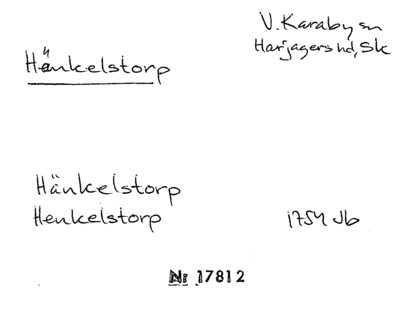 V. Karaby sn
Harjagers hd, Sk
Hänkelstorp
Hänkelstorp
Henkelstorp 1754 Jb
Nr 17812